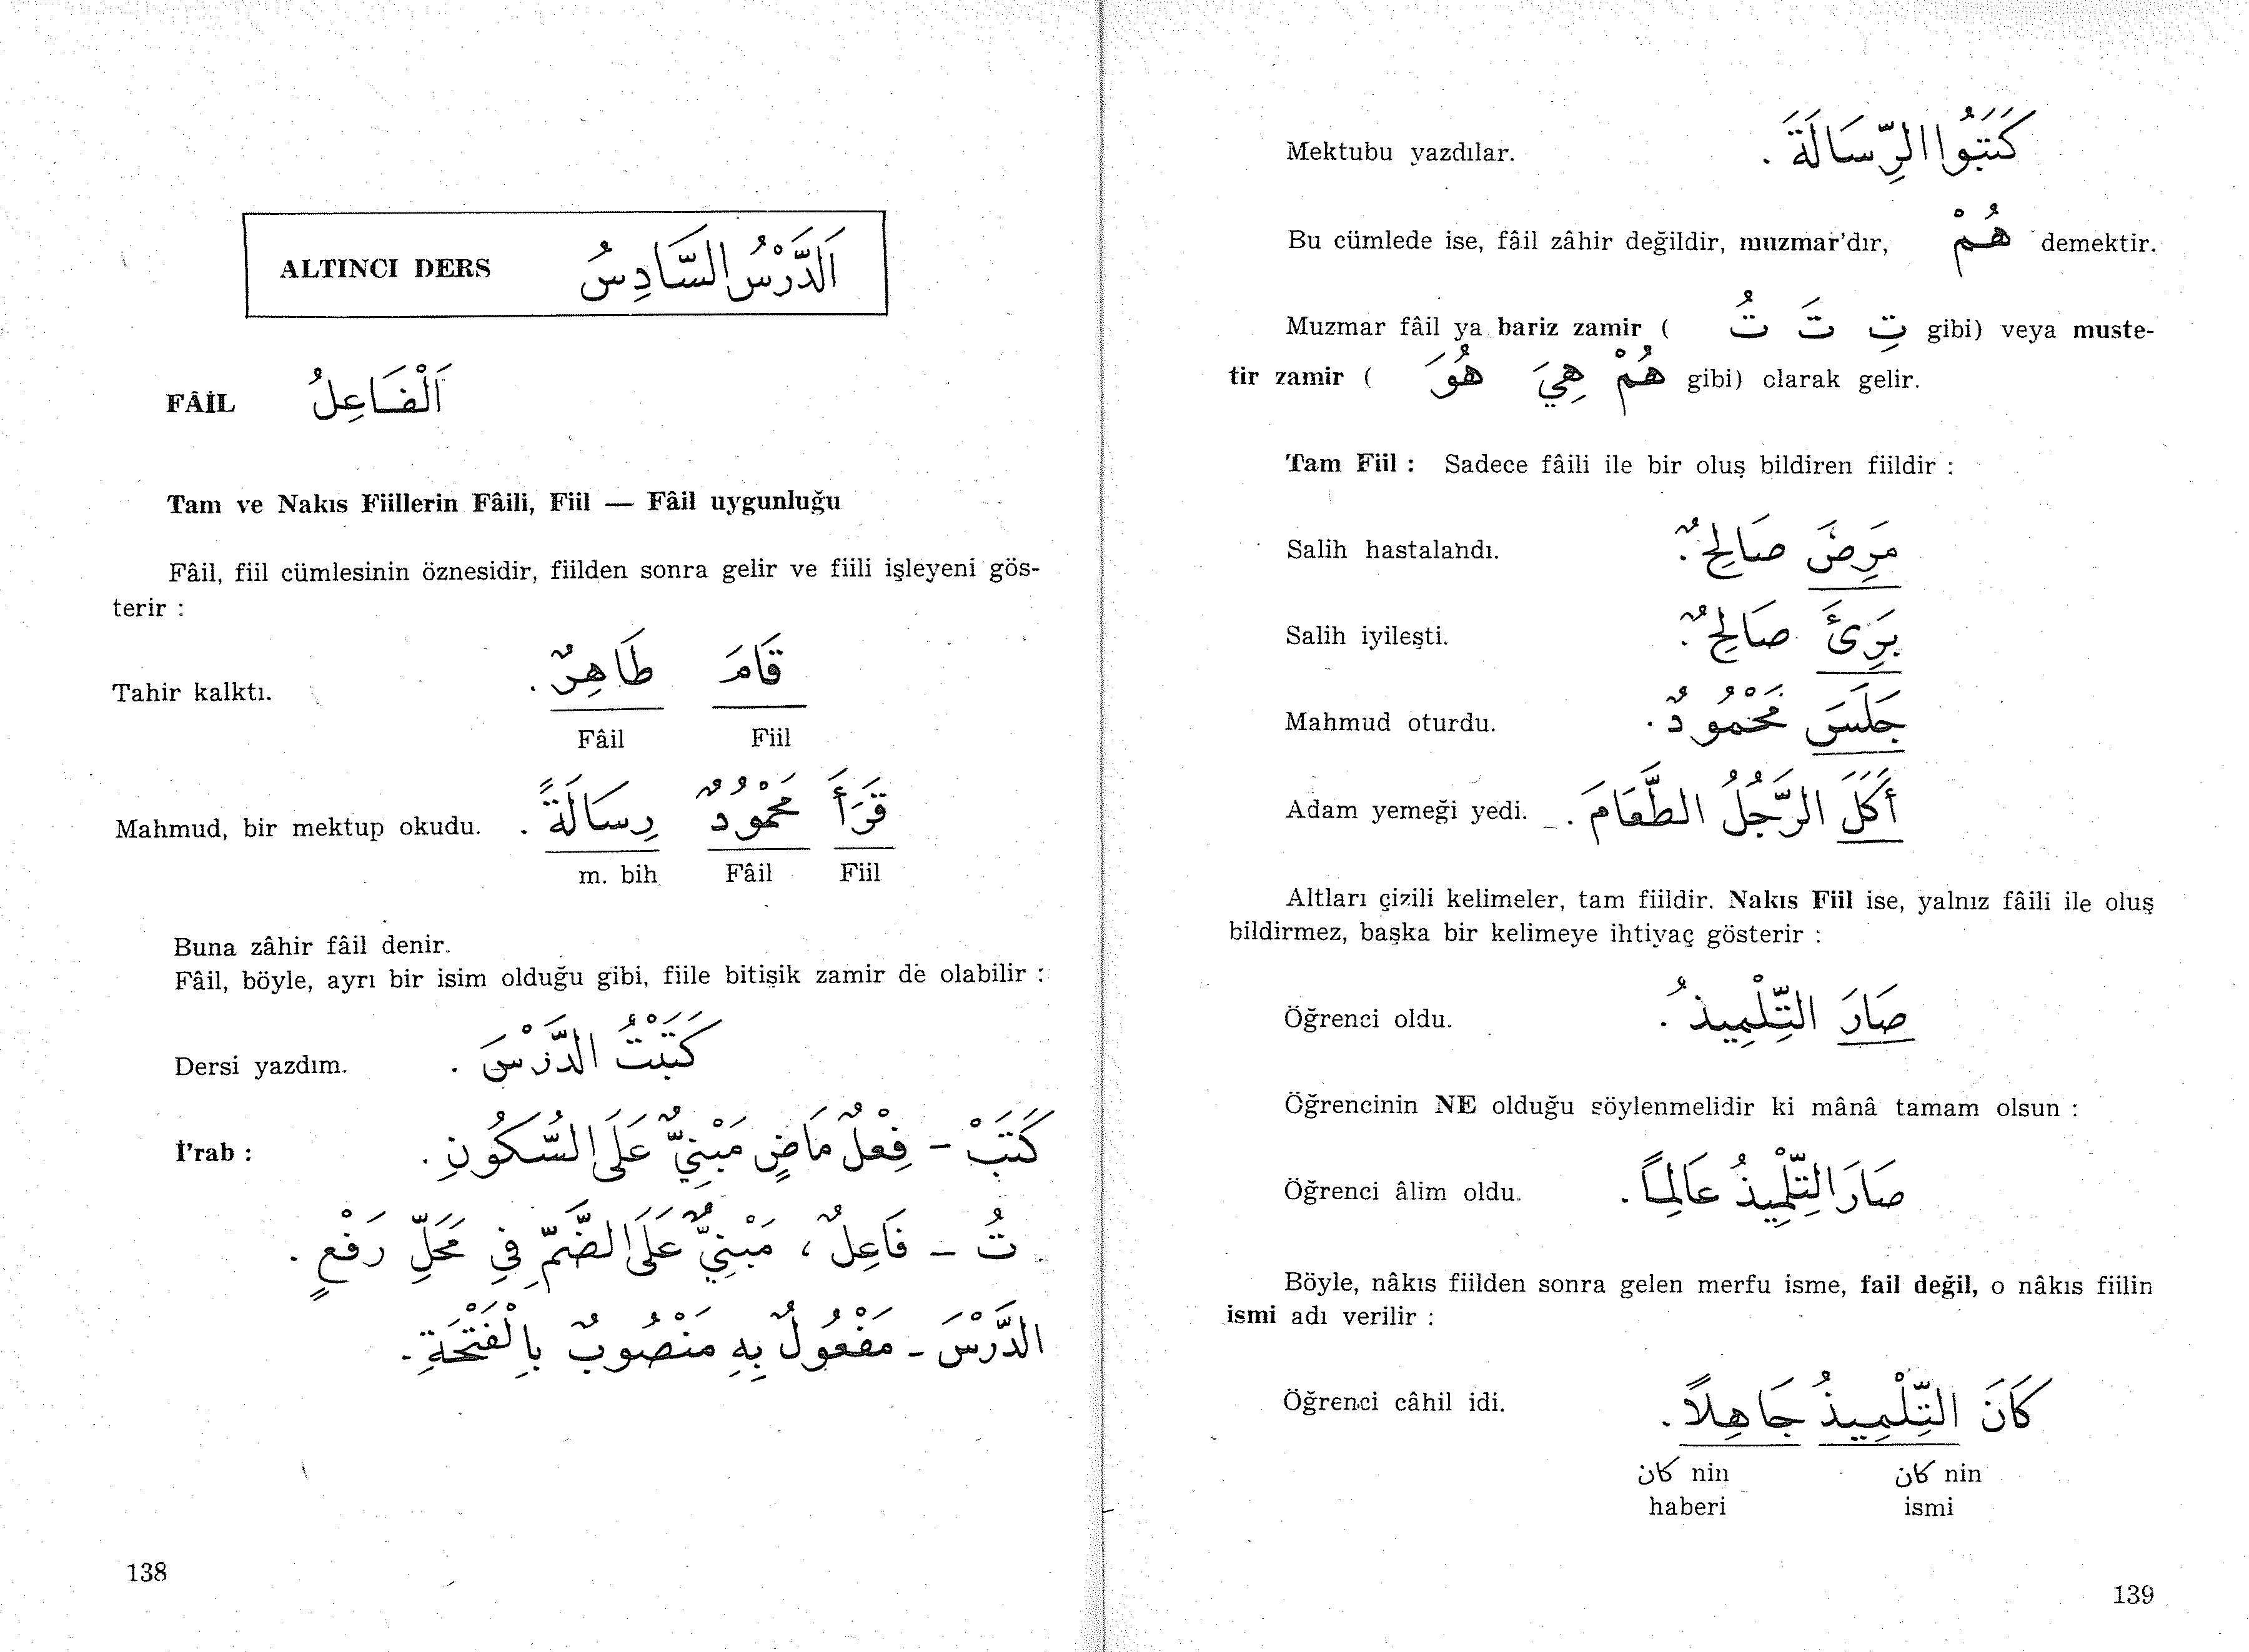 ALTINCI DERS اَلدَّرْسُ السَّادِسُ
FÂİL اَلْفَاعِلُ
Tam ve Nakıs Fiillerin Fâili, Fiil — Fâil uygunluğu
Fâil, fiil cümlesinin öznesidir, fiilden sonra gelir ve fiili işleyeni gös-
terir :
Tahir kalktı. قَامَ طَاهِرٌ .
Fâil Fiil
Mahmud, bir mektup okudu. قَرَأَ مَحْمُودٌ رِسَالَةً .
m. bih Fâil Fiil
Buna zâhir fâil denir.
Fâil, böyle, ayrı bir isim olduğu gibi, fiile bitişik zamir de olabilir :
Dersi yazdım. كَتَبْتُ الدَّرْسَ .
İ'rab : كَتَبْ – فِعْلٌ مَاضٍ مَبْنِيٌّ عَلَى السُّكُونِ .
تُ – فَاعِلٌ ، مَبْنِيٌّ عَلَى الضَّمِّ فِي مَحَلِّ رَفْعٍ .
الدَّرْسَ – مَفْعُولٌ بِهِ مَنْصُوبٌ بِالْفَتْحَةِ -
138
Mektubu yazdılar. كَتَبُوا الرِّسَالَةَ .
Bu cümlede ise, fâil zâhir değildir, muzmar'dır, هُمْ demektir.
Muzmar fâil ya bariz zamir ( تُ تَ تِ gibi) veya muste-
tir zamir ( هُوَ هِيَ هُمْ gibi) olarak gelir.
Tam Fiil : Sadece fâili ile bir oluş bildiren fiildir :
Salih hastalandı. مَرِضَ صَالِحٌ .
Salih iyileşti. بَرِئَ صَالِحٌ .
Mahmud oturdu. جَلَسَ مَحْمُودٌ .
Adam yemeği yedi. أَكَلَ الرَّجُلُ الطَّعَامَ .
Altları çizili kelimeler, tam fiildir. Nakıs Fiil ise, yalnız fâili ile oluş
bildirmez, başka bir kelimeye ihtiyaç gösterir :
Öğrenci oldu. صَارَ التِّلْمِيذُ .
Öğrencinin NE olduğu söylenmelidir ki mânâ tamam olsun :
Öğrenci âlim oldu. صَارَ التِّلْمِيذُ عَالِمًا .
Böyle, nâkıs fiilden sonra gelen merfu isme, fail değil, o nâkıs fiilin
ismi adı verilir :
Öğrenci câhil idi. كَانَ التِّلْمِيذُ جَاهِلًا .
كان nin كان nin
haberi ismi
139